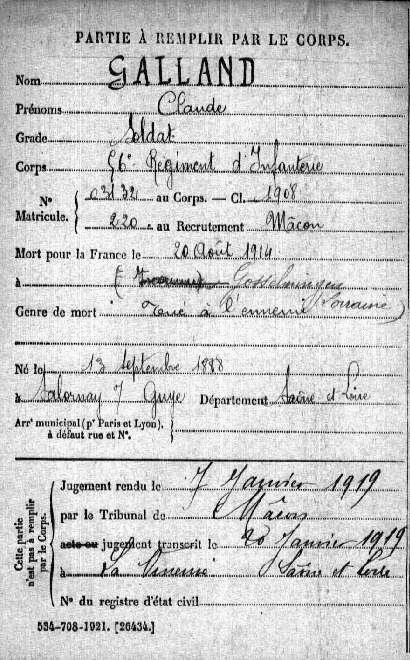 PARTIE À REMPLIR PAR LE CORPS.
Nom GALLAND
Prénoms Claude
Grade Soldat
Corps 56e Régiment d'Infanterie
N° Matricule. 03132 au Corps. — Cl. 1908
220 au Recrutement Mâcon
Mort pour la France le 20 Août 1914
à Gosselmingen
(Lorraine)
Genre de mort Tué à l'ennemi
Né le 13 Septembre 1888
à Salornay s/ Guye Département Saône et Loire
Arrt municipal (pr Paris et Lyon),
à défaut rue et N°.
Cette partie n'est pas à remplir par le Corps.
Jugement rendu le 7 Janvier 1919
par le Tribunal de Mâcon
acte ou jugement transcrit le 20 Janvier 1919
à La Vineuse Saône et Loire
N° du registre d'état civil
534-708-1921. [26434.]